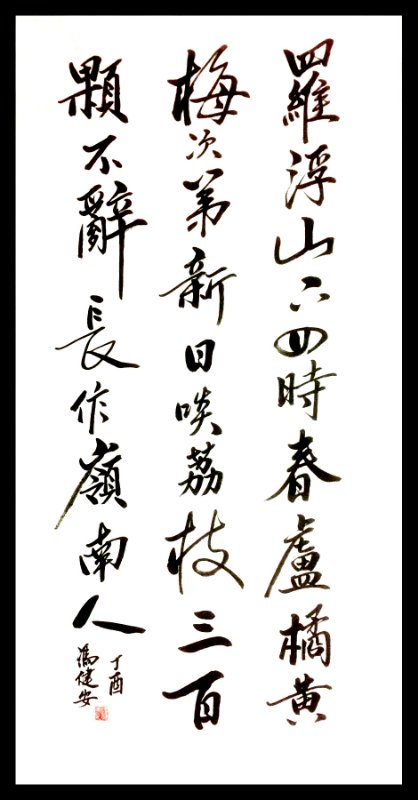 羅浮山下四時春盧橘黃
梅次第新日啖荔枝三百
顆不辭長作嶺南人
丁酉
馮健安